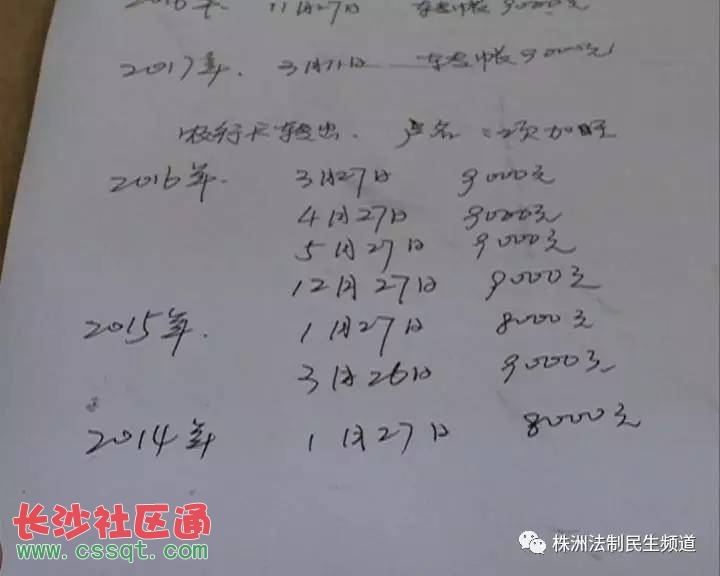 2016年 11月27日 转帐 9000元
2017年. 3月11日 转帐 9000元
银行卡转出. 户名:项加旺
2016年. 3月27日 9000元
4月27日 9000元
5月27日 9000元
12月27日 9000元
2015年. 1月27日 8000元
3月26日 9000元
2014年 1月27日 8000元
长沙社区通
www.cssqt.com
株洲法制民生频道